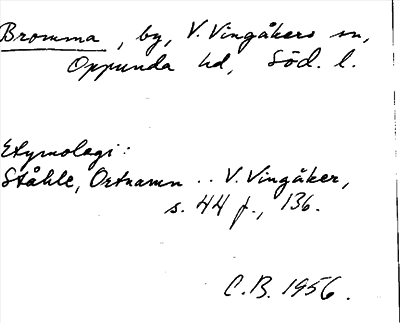 Bromma, by, V. Vingåkers sn,
Oppunda hd, Söd. l.
Etymologi:
Ståhle, Ortnamn .. V. Vingåker,
s. 44 f., 136.
C.B. 1956.